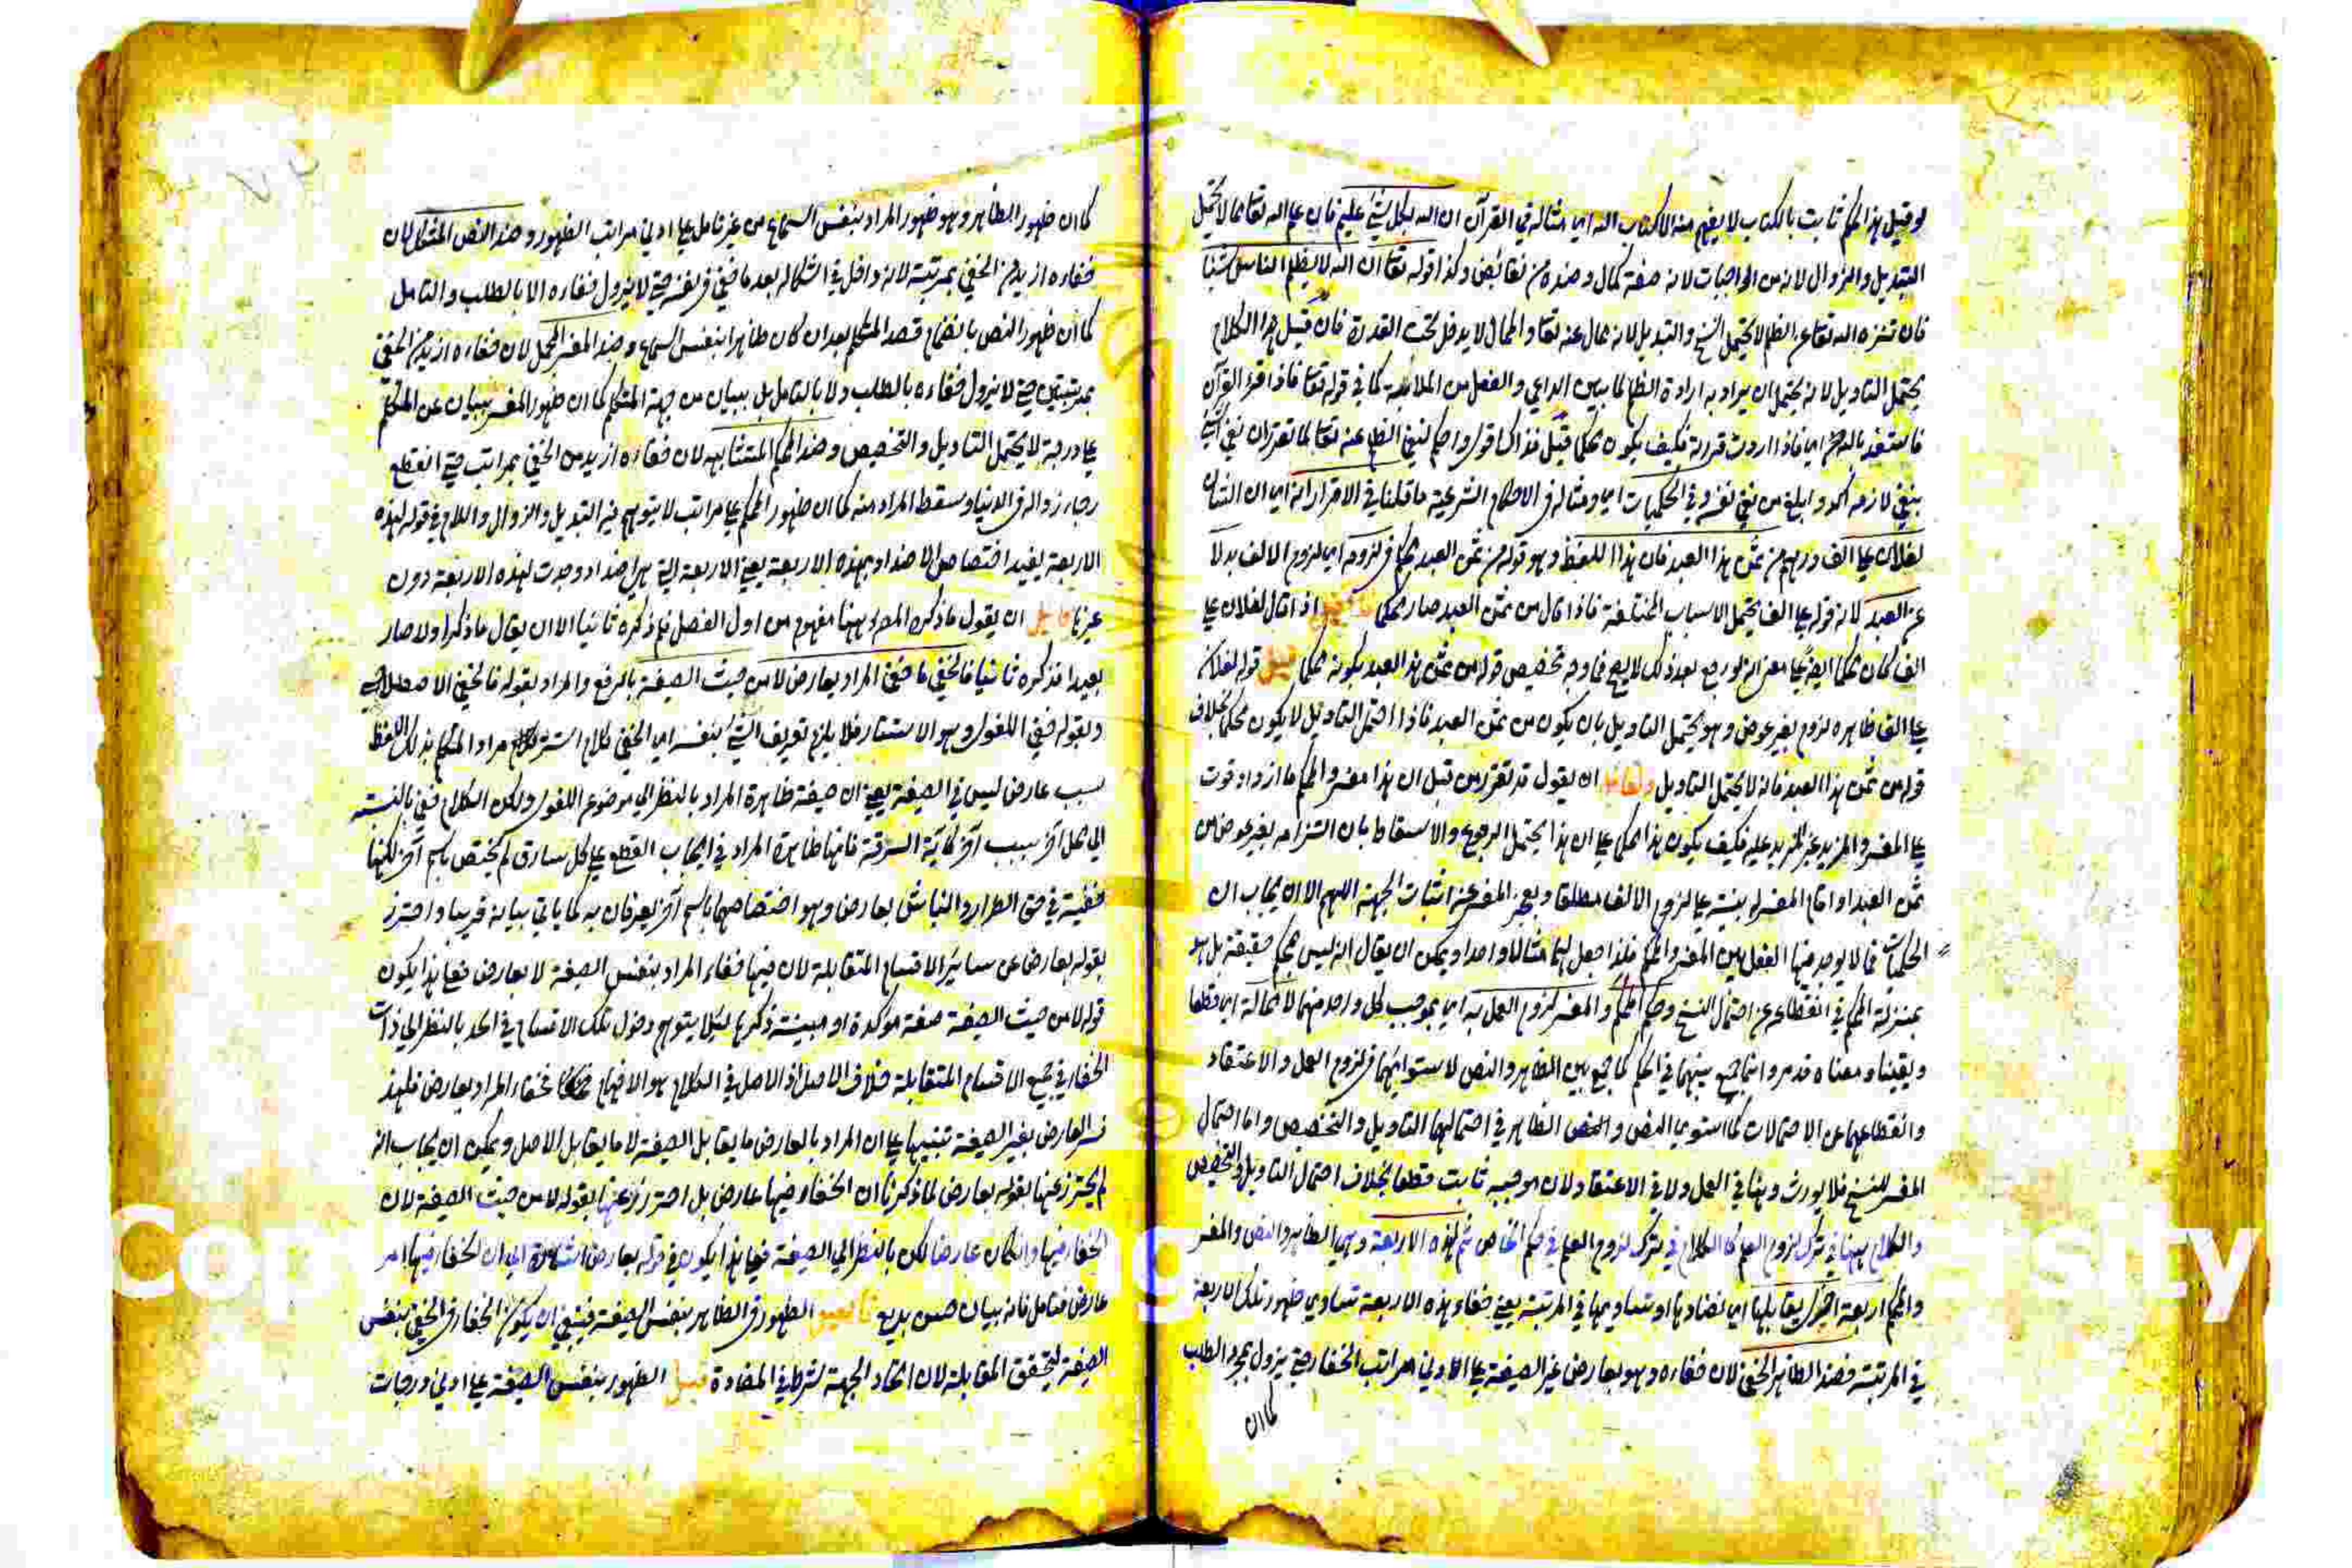 لو قيل هذا الحكم ثابت بالكتاب لا يفهم منه الا كتاب الله اي مثاله في القرآن ان الله بكل شئ عليم فان علم الله تعالى مما لا يحتمل
التبديل والزوال لانه من الواجبات لانه صفة كمال وضده من نقائض وكذا قوله تعالى ان الله لا يظلم الناس شيئا
فان تنزه الله تعالى عن الظلم لا يحتمل النسخ والتبديل لانه محال عنه تعالى والمحال لا يدخل تحت القدرة فان قيل هذا الكلام
يحتمل التاويل لانه يحتمل ان يراد به ارادة الظلم لما بين الداعي والفعل من الملائمة كما في قوله تعالى فاذا قرأت القرآن
فاستعذ بالله اي فاذا اردت قراءة فكيف يكون محكما قيل فذاك اقوى واحكم لنفي الظلم عنه تعالى لما تقرر ان نفي الشئ
بنفي لازمه آكد وابلغ من نفي نفسه وفي الحكميات اي ومثاله في الاحكام الشرعية ما قلنا في الاقرار انه اي ان الشان
لفلان علي الف درهم من ثمن هذا العبد فان هذا اللفظ وهو قوله من ثمن العبد محكم في لزومه اي لزوم الالف بدلا
عن العبد لانه قوله علي الف يحتمل الاسباب المختلفة فاذا قال من ثمن العبد صار محكما اذا قال لفلان علي
الف كان محكما ايضا حتى لو رجع بعد ذلك لا يصح فما وجه تخصيص قوله من ثمن هذا العبد بكونه محكما قيل قوله لفلان
علي الف ظاهره لزوم بغير عوض وهو يحتمل التاويل بان يكون من ثمن العبد فاذا احتمل التاويل لا يكون محكما بخلاف
قوله من ثمن هذا العبد فانه لا يحتمل التاويل ولقائل ان يقول قد تقرر من قبل ان هذا مفسر والمحكم ما ازداد قوة
على المفسر والمزيد غير المزيد عليه فكيف يكون هذا محكما على ان هذا يحتمل الرجوع والاسقاط بان التزامه بغير عوض من
ثمن العبد او اقام المقر له بينة على لزوم الالف مطلقا ويعجز المقر عن اثبات الجهة اللهم الا ان يجاب ان
الحكميات مما لا يوجد فيها الفصل بين المفسر والمحكم فلذا جعل لهما مثالا واحدا ويمكن ان يقال انه ليس بمحكم حقيقة بل هو
بمنزلة المحكم في انقطاعه عن احتمال النسخ وحكم المحكم والمفسر لزوم العمل به اي بموجب كل واحد منهما لا محالة اي قطعا
ويقينا ومعناه قد مر وانما جمع بينهما في الحكم كما جمع بين الظاهر والنص لاستوائهما في لزوم العمل والاعتقاد
وانقطاعهما عن الاحتمالات كما استوى النص والظاهر في احتمالهما التاويل والتخصيص واما احتمال
المفسر للنسخ فلا يورث وهنا في العمل ولا في الاعتقاد لان موجبه ثابت قطعا بخلاف احتمال التاويل والتخصيص
والكلام ههنا في ترك لزوم العلم كالكلام في ترك لزوم العلم في حكم الخاص ثم لهذه الاربعة وهي الظاهر والنص والمفسر
والمحكم اربعة اخرى يقابلها اي تضادها او تساويها في المرتبة يعني خفاء هذه الاربعة تساوي ظهور تلك الاربعة
في المرتبة فضد الظاهر الخفي لان خفاءه وهو بعارض غير الصيغة على الادنى مراتب الخفاء حتى يزول بمجرد الطلب
كما ان
كما ان ظهور الظاهر وهو ظهور المراد بنفس السماع من غير تامل على ادنى مراتب الظهور وضد النص المشكل لان
خفاءه ازيد من الخفي بمرتبة لانه داخل في اشكاله بعد ما خفي في نفسه حتى لا يزول خفاءه الا بالطلب والتامل
كما ان ظهور النص بانضمام قصد المتكلم بعد ان كان ظاهرا بنفس السماع وضد المفسر المجمل لان خفاءه ازيد من الخفي
بمرتبتين حتى لا يزول خفاءه بالطلب ولا بالتامل بل ببيان من جهة المتكلم كما ان ظهور المفسر ببيان عن المتكلم
على درجة لا يحتمل التاويل والتخصيص وضد المحكم المتشابه لان خفاءه ازيد من الخفي بمراتب حتى انقطع
رجاء زواله في الدنيا وسقط المراد منه كما ان ظهور المحكم على مراتب لا يتوهم فيه التبديل والزوال واللام في قوله لهذه
الاربعة يفيد اختصاص الاضداد بهذه الاربعة يعني الاربعة التي هي اضداد وجدت لهذه الاربعة دون
غيرها ان يقول ما ذكره المص ههنا مفهوم من اول الفصل فلم ذكره ثانيا الا ان يقال ما ذكر اولا صار
بعيدا فذكره ثانيا فالخفي ما خفي المراد بعارض لا من حيث الصيغة بالرفع والمراد بقوله فالخفي الاصطلاحي
وبقوله خفي اللغوي وهو الاستتار فلا يلزم تعريف الشئ بنفسه اي الخفي كلام استتر مراد المتكلم بذلك اللفظ
بسبب عارض ليس في الصيغة يعني ان صيغة ظاهرة المراد بالنظر الى موضوع اللغوي ولكن الكلام خفي بالنسبة
الى محل آخر بسبب آخر كآية السرقة فانها ظاهرة المراد في ايجاب القطع على كل سارق لم يختص باسم آخر لكنها
خفية في حق الطرار والنباش بعارض وهو اختصاصهما باسم آخر يعرفان به كما ياتي بيانه قريبا واحترز
بقوله بعارض عن سائر الاقسام المتقابلة لان فيها خفاء المراد بنفس الصيغة لا بعارض فعلى هذا يكون
قوله لا من حيث الصيغة صفة مؤكدة او مبينة ذكرها لئلا يتوهم دخول تلك الاقسام في الحد بالنظر الى ذات
الخفاء في جميع الاقسام المتقابلة خلاف الاصل اذ الاصل في الكلام هو الافهام فخفاء المراد بعارض فلهذا
فسر العارض بغير الصيغة تنبيها على ان المراد بالعارض ما يقابل الصيغة لا ما يقابل الاصل ويمكن ان يجاب انه
لم يحترز عنها بقوله بعارض لما ذكرنا ان الخفاء فيها عارض بل احترز عنها بقوله لا من حيث الصيغة لان
الخفاء فيها وان كان عارضا لكن بالنظر الى الصيغة فعلى هذا يكون في قوله بعارض اشارة الى ان الخفاء فيها امر
عارض فتامل فانه بيان حسن بديع الظهور في الظاهر بنفس الصيغة فينبغي ان يكون الخفاء في الخفي بنفس
الصيغة ليتحقق المقابلة لان اتحاد الجهة شرط في المضادة قيل الظهور بنفس الصيغة على ادنى درجات